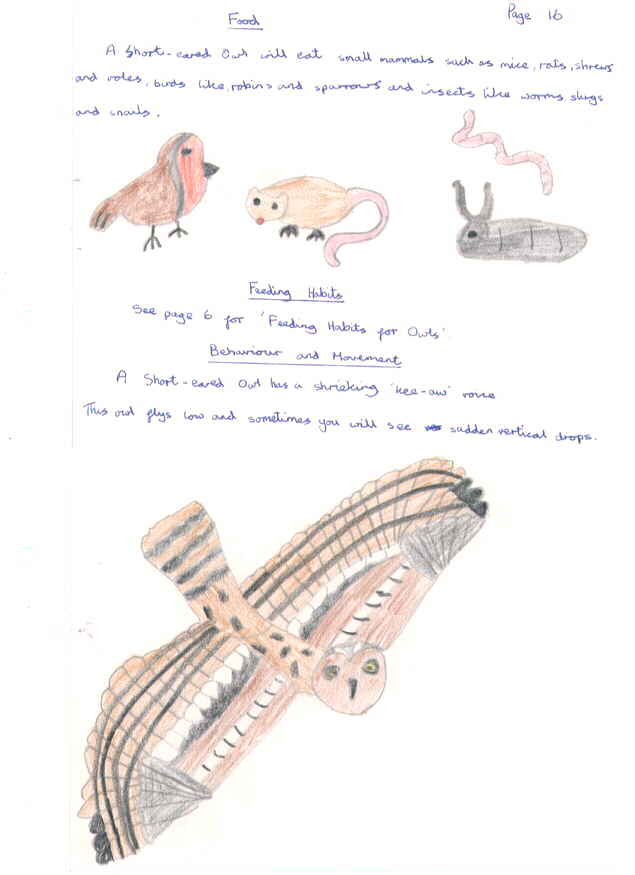 Page 16
Food
A Short-eared Owl will eat small mammals such as mice, rats, shrews
and voles, birds like robins and sparrows and insects like worms, slugs
and snails.
Feeding Habits
See page 6 for 'Feeding Habits for Owls'.
Behaviour and Movement
A Short-eared Owl has a shrieking 'kee-aw' voice
This owl flys low and sometimes you will see sudden vertical drops.